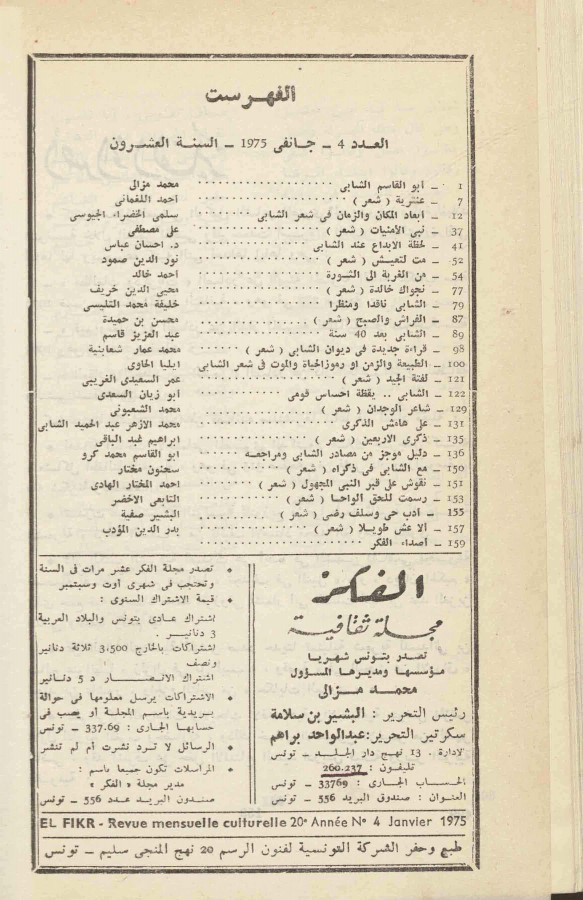 الفهرست
العدد 4 – جانفى 1975 – السنة العشرون
1 – أبو القاسم الشابى ........ محمد مزالى
7 – عنترية ( شعر ) ........ احمد اللغمانى
12 – أبعاد المكان والزمان فى شعر الشابى ........ سلمى الخضراء الجيوسى
37 – نبى الأمنيات ( شعر ) ........ على مصطفى
41 – لحظة الابداع عند الشابى ........ د. احسان عباس
52 – مت لتعيش ( شعر ) ........ نور الدين صمود
54 – من الغربة الى الثورة ........ احمد خالد
77 – نجواك خالدة ( شعر ) ........ محيى الدين خريف
79 – الشابى ناقدا ومنظرا ........ خليفة محمد التليسى
87 – الفراش والصبح ( شعر ) ........ محسن بن حميدة
89 – الشابى بعد 40 سنة ........ عبد العزيز قاسم
98 – قراءة جديدة فى ديوان الشابى ( شعر ) ........ محمد عمار شعابنية
100 – الطبيعة والزمن او رموز الحياة والموت فى شعر الشابى ايليا الحاوى
121 – لفتة الجيد ( شعر ) ........ عمر السعيدى الغريبى
122 – الشابى .. يقظة احساس قومى ........ أبو زيان السعدى
129 – شاعر الوجدان ( شعر ) ........ محمد الشعبونى
131 – على هامش الذكرى ........ محمد الازهر عبد الحميد الشابى
135 – ذكرى الاربعين ( شعر ) ........ ابراهيم عبد الباقى
136 – دليل موجز من مصادر الشابى ومراجعه ........ ابو القاسم محمد كرو
150 – مع الشابى فى ذكراه ( شعر ) ........ سحنون مختار
151 – نقوش على قبر النبى المجهول ( شعر ) ........ احمد المختار الهادى
153 – رسمت للحق الواحا ( شعر ) ........ التابعى الاخضر
155 – أدب حى وسلف رضى ( شعر ) ........ البشير صفية
157 – ألا عش طويلا ( شعر ) ........ بدر الدين المؤدب
159 – أصداء الفكر
الفكر
مجلة ثقافية
تصدر بتونس شهريا
مؤسسها ومديرها المسؤول
محمد مزالى
رئيس التحرير : البشير بن سلامة
سكرتير التحرير : عبدالواحد براهم
الادارة . 13 نهج دار الجلد – تونس
تليفون : 260.237
الحساب الجارى : 33769 – تونس
العنوان : صندوق البريد 556 – تونس
• تصدر مجلة الفكر عشر مرات فى السنة
وتحتجب فى شهرى أوت وسبتمبر
• قيمة الاشتراك السنوى :
اشتراك عادى بتونس والبلاد العربية
3 دنانير .
اشتراكات بالخارج 3,500 ثلاثة دنانير
ونصف
اشتراك الانصار د 5 دنانير
• الاشتراكات يرسل معلومها فى حوالة
بريدية باسم المجلة أو يصب فى
حسابها الجارى : 337.69 – تونس
• الرسائل لا ترد نشرت أم لم تنشر
• المراسلات تكون جميعا باسم :
مدير مجلة « الفكر »
صندوق البريد عدد 556 – تونس
EL FIKR - Revue mensuelle culturelle 20e Année No 4 Janvier 1975
طبع وحفر الشركة التونسية لفنون الرسم 20 نهج المنجى سليم – تونس